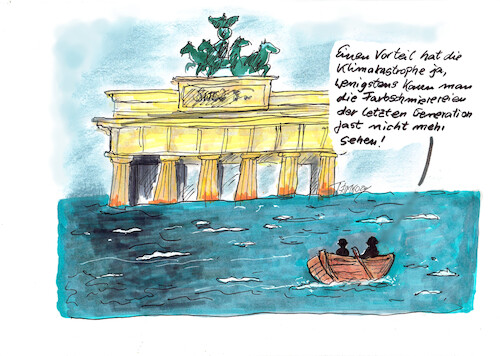 Einen Vorteil hat die
Klimakatastrophe ja,
wenigstens kann man
die Farbschmierereien
der letzten Generation
fast nicht mehr
sehen!